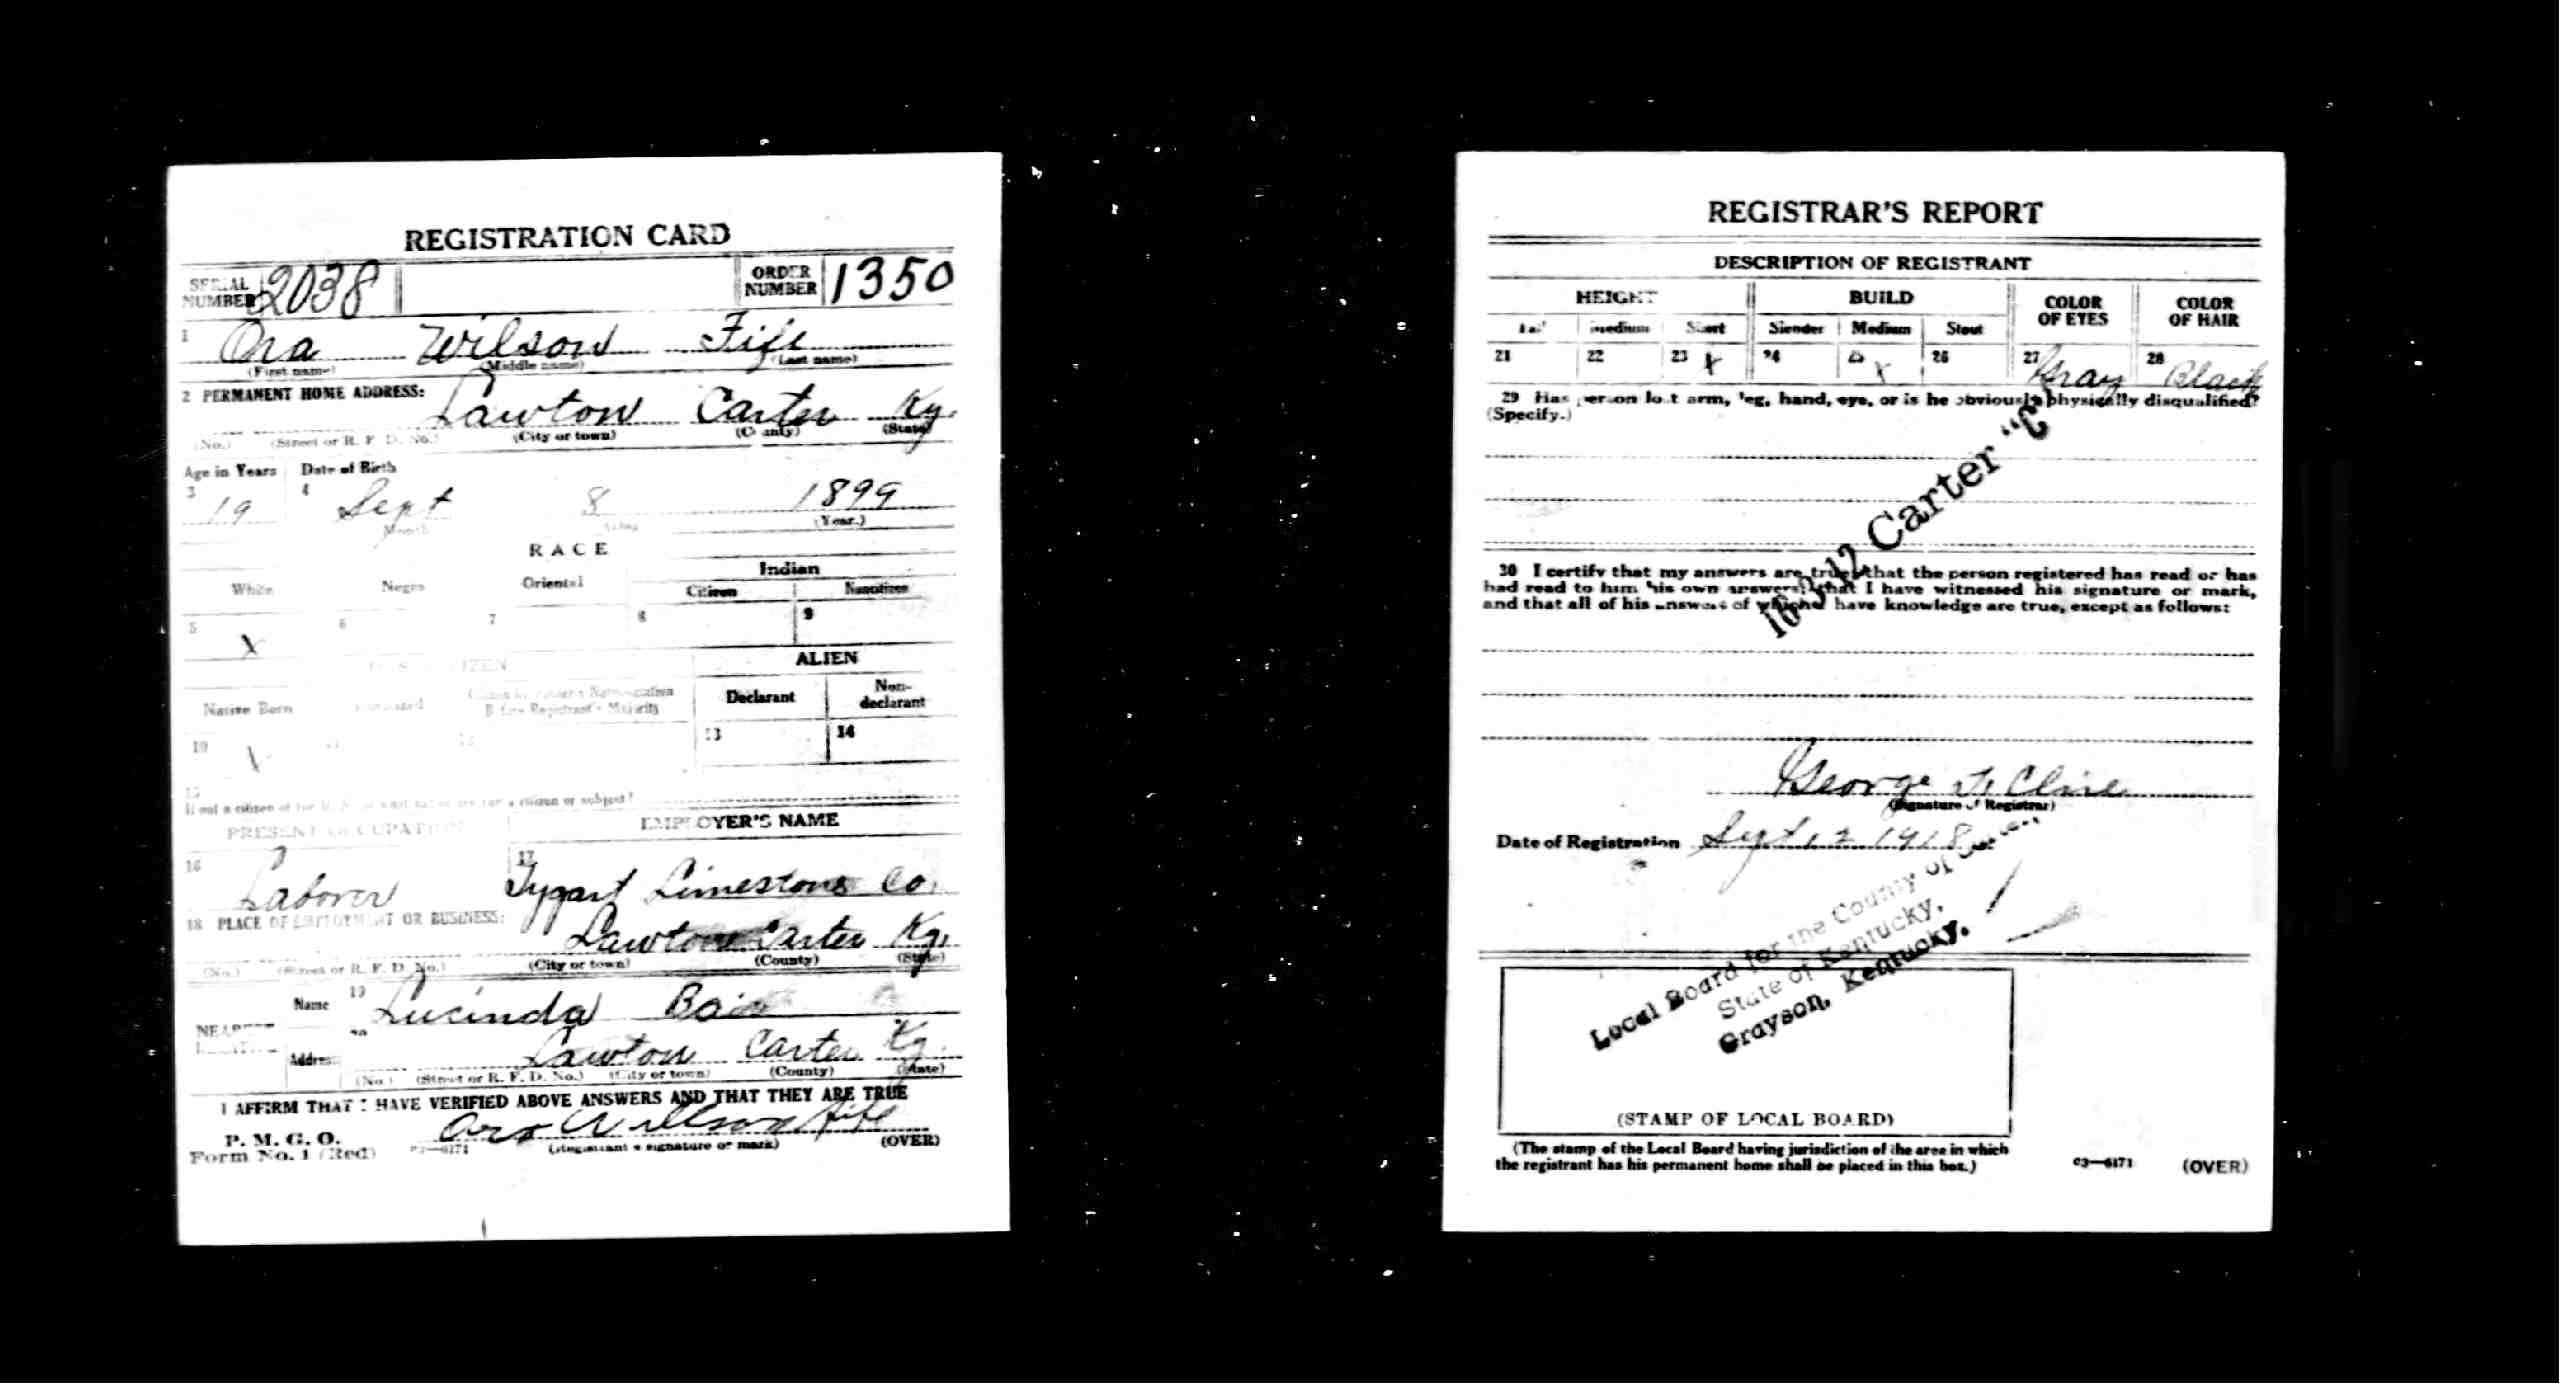 REGISTRATION CARD
SERIAL NUMBER 2038 ORDER NUMBER 1350
1 Ora Wilson Fife
(First name) (Middle name) (Last name)
2 PERMANENT HOME ADDRESS: Lawton Carter Ky.
(No.) (Street or R. F. D. No.) (City or town) (County) (State)
Age in Years Date of Birth
3 19 4 Sept 8 1899
Month (Day) (Year.)
RACE
White Negro Oriental Indian
Citizen Noncitizen
5 X 6 7 8 9
CITIZEN ALIEN
Native Born Citizen by Father's Naturalization Before Registrant's Majority Declarant Non-declarant
10 13 14
15
If not a citizen of the U. S., of what nation are you a citizen or subject?
PRESENT OCCUPATION EMPLOYER'S NAME
16 Laborer 17 Tygart Limestone Co.
18 PLACE OF EMPLOYMENT OR BUSINESS:
Lawton Carter Ky.
(No.) (Street or R. F. D. No.) (City or town) (County) (State)
NEAREST RELATIVE Name 19 Lucinda
Address 20 Lawton Carter Ky.
(No.) (Street or R. F. D. No.) (City or town) (County) (State)
I AFFIRM THAT I HAVE VERIFIED ABOVE ANSWERS AND THAT THEY ARE TRUE
P. M. G. O.
Form No. 1 (Red) 03—6171 Ora Wilson Fife
(Registrant's signature or mark) (OVER)
REGISTRAR'S REPORT
DESCRIPTION OF REGISTRANT
HEIGHT BUILD COLOR OF EYES COLOR OF HAIR
Tall Medium Short Slender Medium Stout
21 22 23 X 24 25 X 26 27 Gray 28 Black
29 Has person lost arm, leg, hand, eye, or is he obviously physically disqualified?
(Specify.)
16-3-12 Carter "C"
30 I certify that my answers are true; that the person registered has read or has
had read to him his own answers; that I have witnessed his signature or mark,
and that all of his answers of which I have knowledge are true, except as follows:
George F. Cline
(Signature of Registrar)
Date of Registration Sept 12 1918
Local Board for the County of Carter,
State of Kentucky,
Grayson, Kentucky.
(STAMP OF LOCAL BOARD)
(The stamp of the Local Board having jurisdiction of the area in which
the registrant has his permanent home shall be placed in this box.)
03—6171 (OVER)